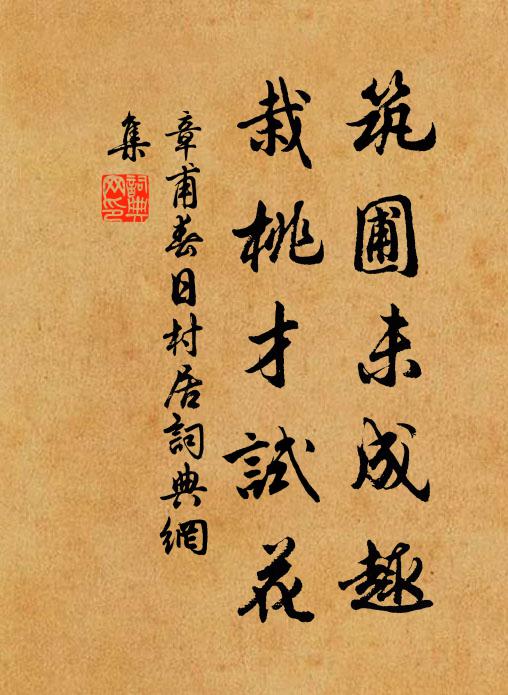 筑圃未成趣
栽桃才試花
章甫春日村居詞典網
集
詞典
网印